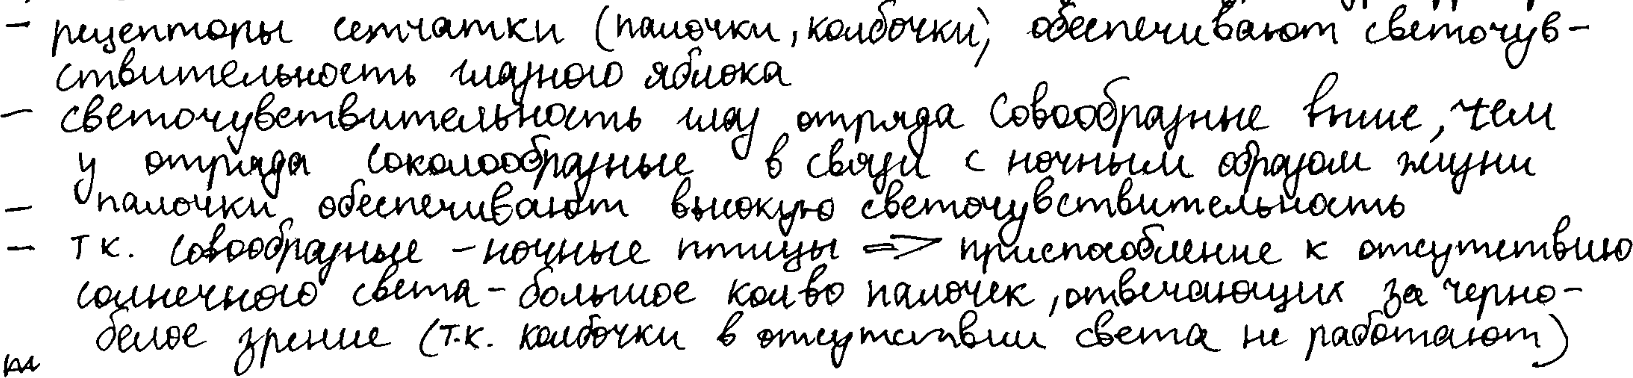 – рецепторы сетчатки (палочки, колбочки) обеспечивают светочув-
ствительность глазного яблока
– светочувствительность глаз отряда Совообразные выше, чем
у отряда Соколообразные в связи с ночным образом жизни
– палочки обеспечивают высокую светочувствительность
– т.к. Совообразные – ночные птицы => приспособление к отсутствию
солнечного света – большое кол-во палочек, отвечающих за черно-
белое зрение (т.к. колбочки в отсутствии света не работают)